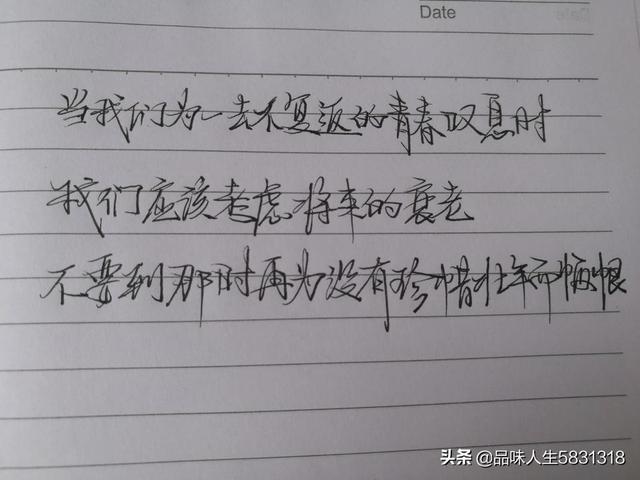 Date
当我们为一去不复返的青春叹息时
我们应该考虑将来的衰老
不要到那时再为没有珍惜壮年而悔恨
头条 @品味人生5831318